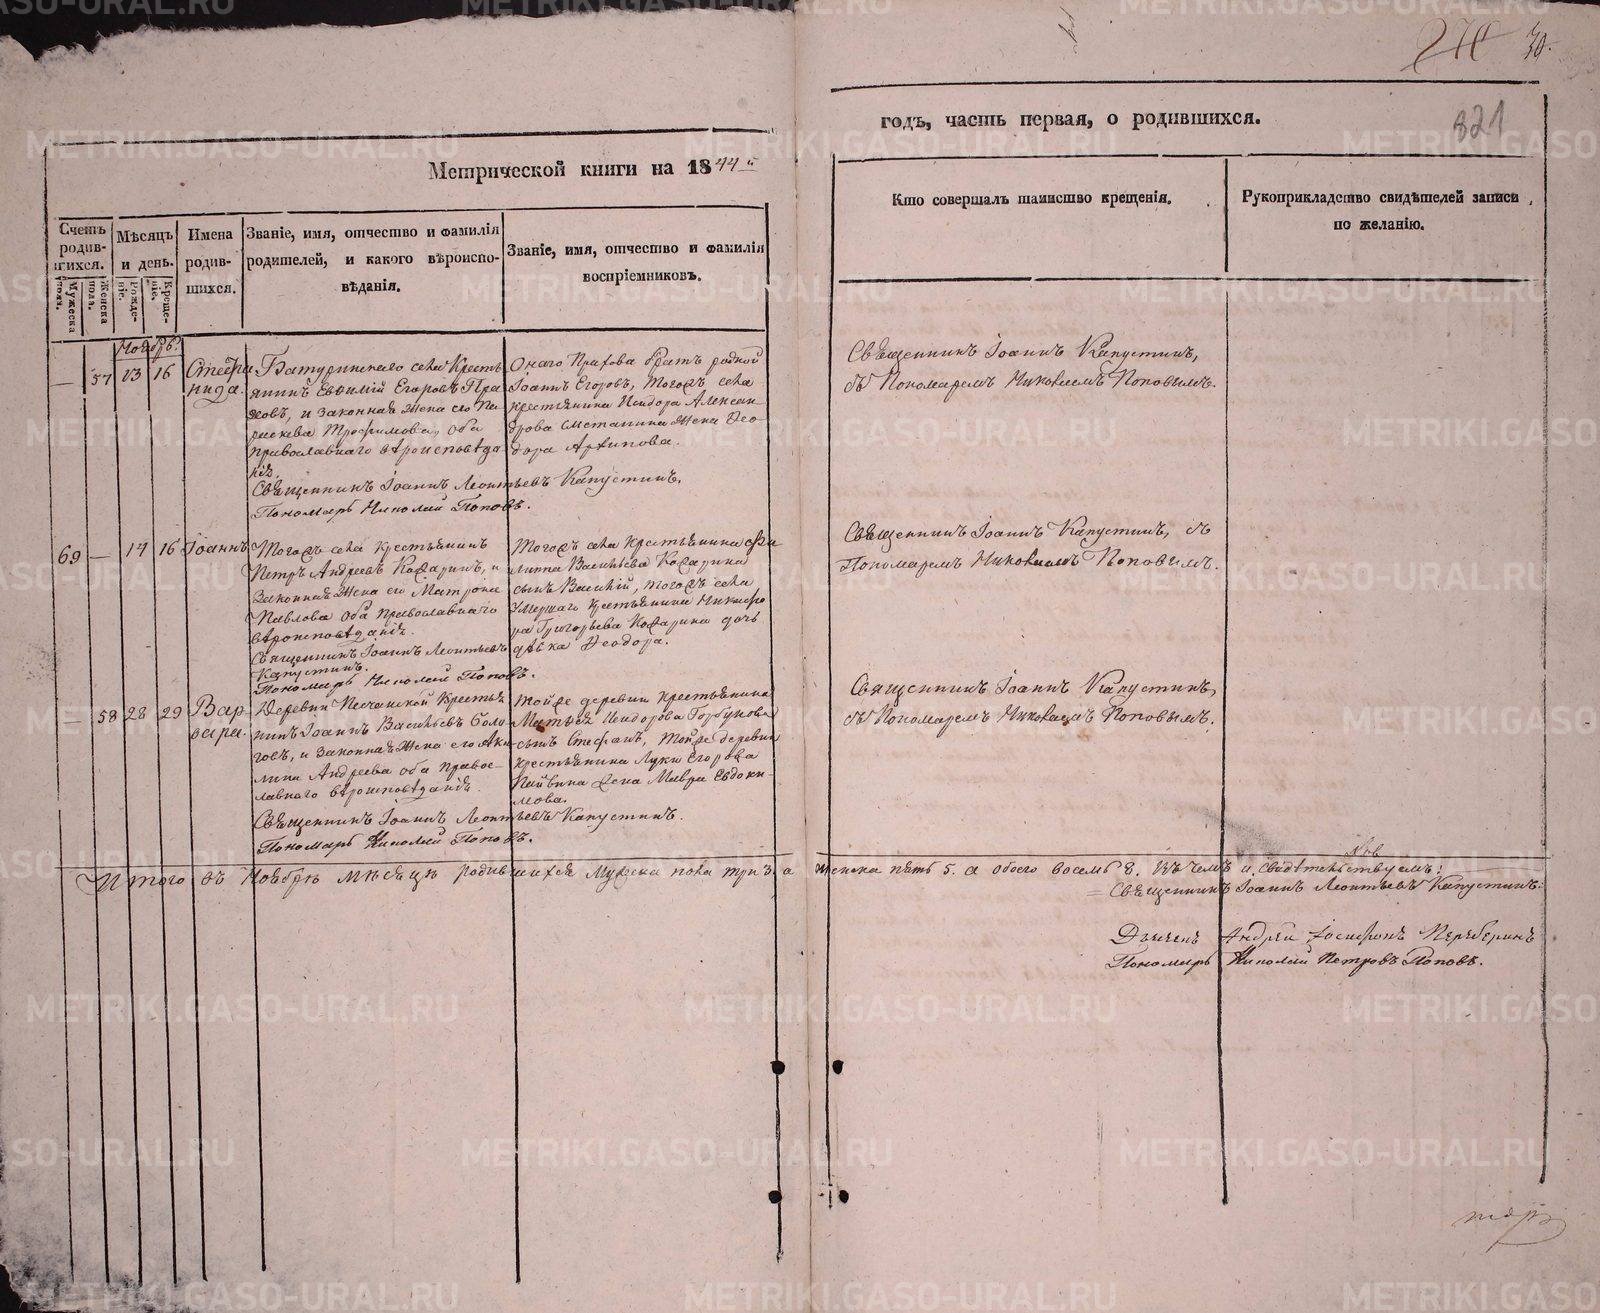 30.
821
Метрической книги на 1844й
годъ, часть первая, о родившихся.
Счетъ родившихся.
Мужеска пола.
Женска пола.
Мѣсяцъ и день.
Рожденіе.
Крещеніе.
Имена родившихся.
Званіе, имя, отчество и фамилія родителей, и какого вѣроисповѣданія.
Званіе, имя, отчество и фамилія воспріемниковъ.
Кто совершалъ таинство крещенія.
Рукоприкладство свидѣтелей записи по желанію.
Ноябрь.
— 57 13 16
Стефанида.
Батуринскаго села Кресть
янинъ Евфимій Егоровъ Пра
ховъ, и законная жена его Па
раскева Трофимова, оба
православнаго вѣроисповѣда
нія.
Священникъ Іоаннъ Леонтьевъ Капустинъ.
Пономарь Николай Поповъ.
Онаго Прахова братъ родной
Іоаннъ Егоровъ, тогожъ села
крестьянина Исидора Алексан
дрова Сметанина жена Фео
дора Архипова.
Священникъ Іоаннъ Капустинъ,
съ Пономаремъ Николаемъ Поповымъ.
69 — 14 16
Іоаннъ
Тогожъ села крестьянинъ
Петръ Андреевъ Кожаринъ, и
законная жена его Матрона
Павлова оба православнаго
вѣроисповѣданія.
Священникъ Іоаннъ Леонтьевъ
Капустинъ.
Пономарь Николай Поповъ.
Тогожъ села крестьянина Фи
липпа Васильева Кожарина
сынъ Василій, тогожъ села
умершаго крестьянина Никифо
ра Григорьева Кожарина дочь
дѣвка Феодора.
Священникъ Іоаннъ Капустинъ, съ
Пономаремъ Николаемъ Поповымъ.
— 58 28 29
Вар
вара.
Деревни Песчанской Крестья
нинъ Іоаннъ Васильевъ Боло
товъ, и законная жена его Аки
лина Андреева оба правос
лавнаго вѣроисповѣданія.
Священникъ Іоаннъ Леонтьевъ Капустинъ.
Пономарь Николай Поповъ.
Тойже деревни крестьянина
Матвея Исидорова Горбунова
сынъ Стефанъ, тойже деревни
крестьянина Луки Егорова
жена Мавра Евдоки
мова.
Священникъ Іоаннъ Капустинъ,
съ Пономаремъ Николаемъ Поповымъ.
Итого въ Ноябрѣ мѣсяцѣ родившихся мужеска пола три 3. а женска пять 5. а обоего восемь 8. Въ чемъ и свидѣтельствуемъ:
Священникъ Іоаннъ Леонтьевъ Капустинъ.
Дьячекъ Андрей Іосифовъ
Пономарь Николай Петровъ Поповъ.
METRIKI.GASO-URAL.RU